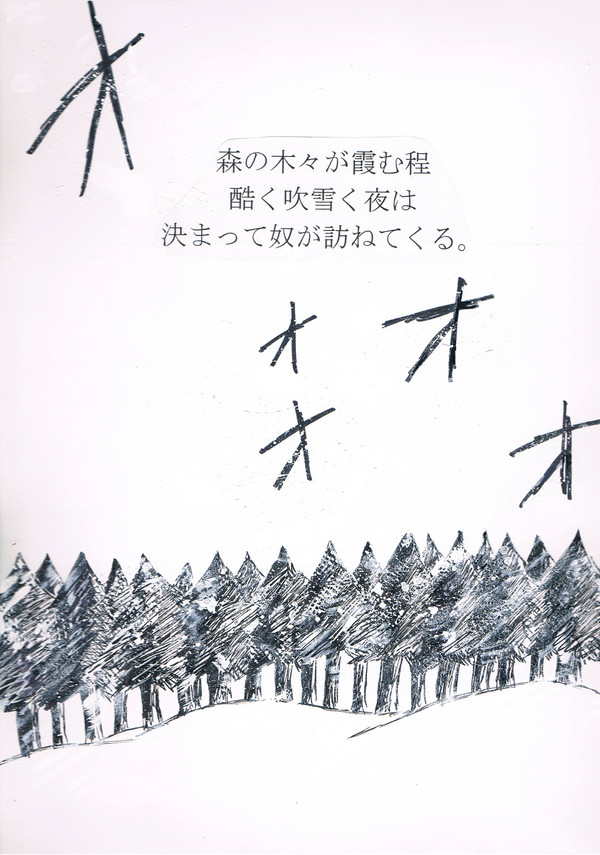 オ
森の木々が霞む程
酷く吹雪く夜は
決まって奴が訪ねてくる。
オ オ
オ オ